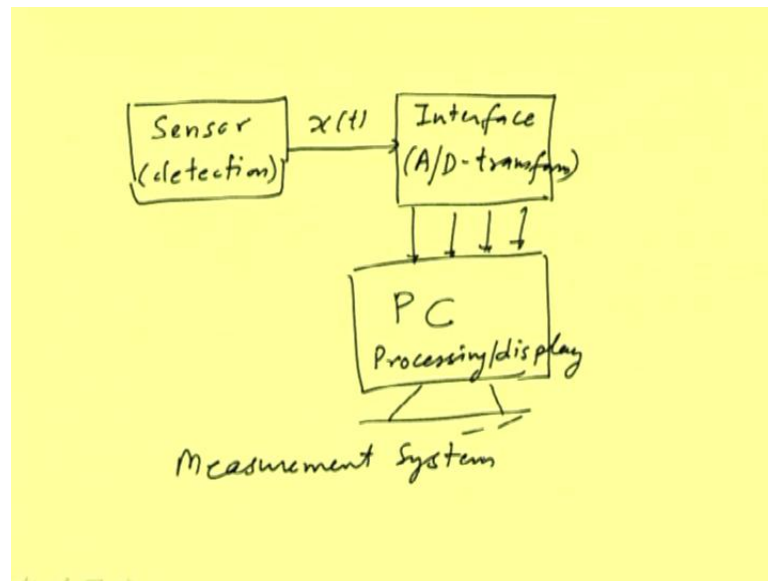 Sensor
(detection)
x(t)
Interface
(A/D-transform)
PC
Processing/display
Measurement System